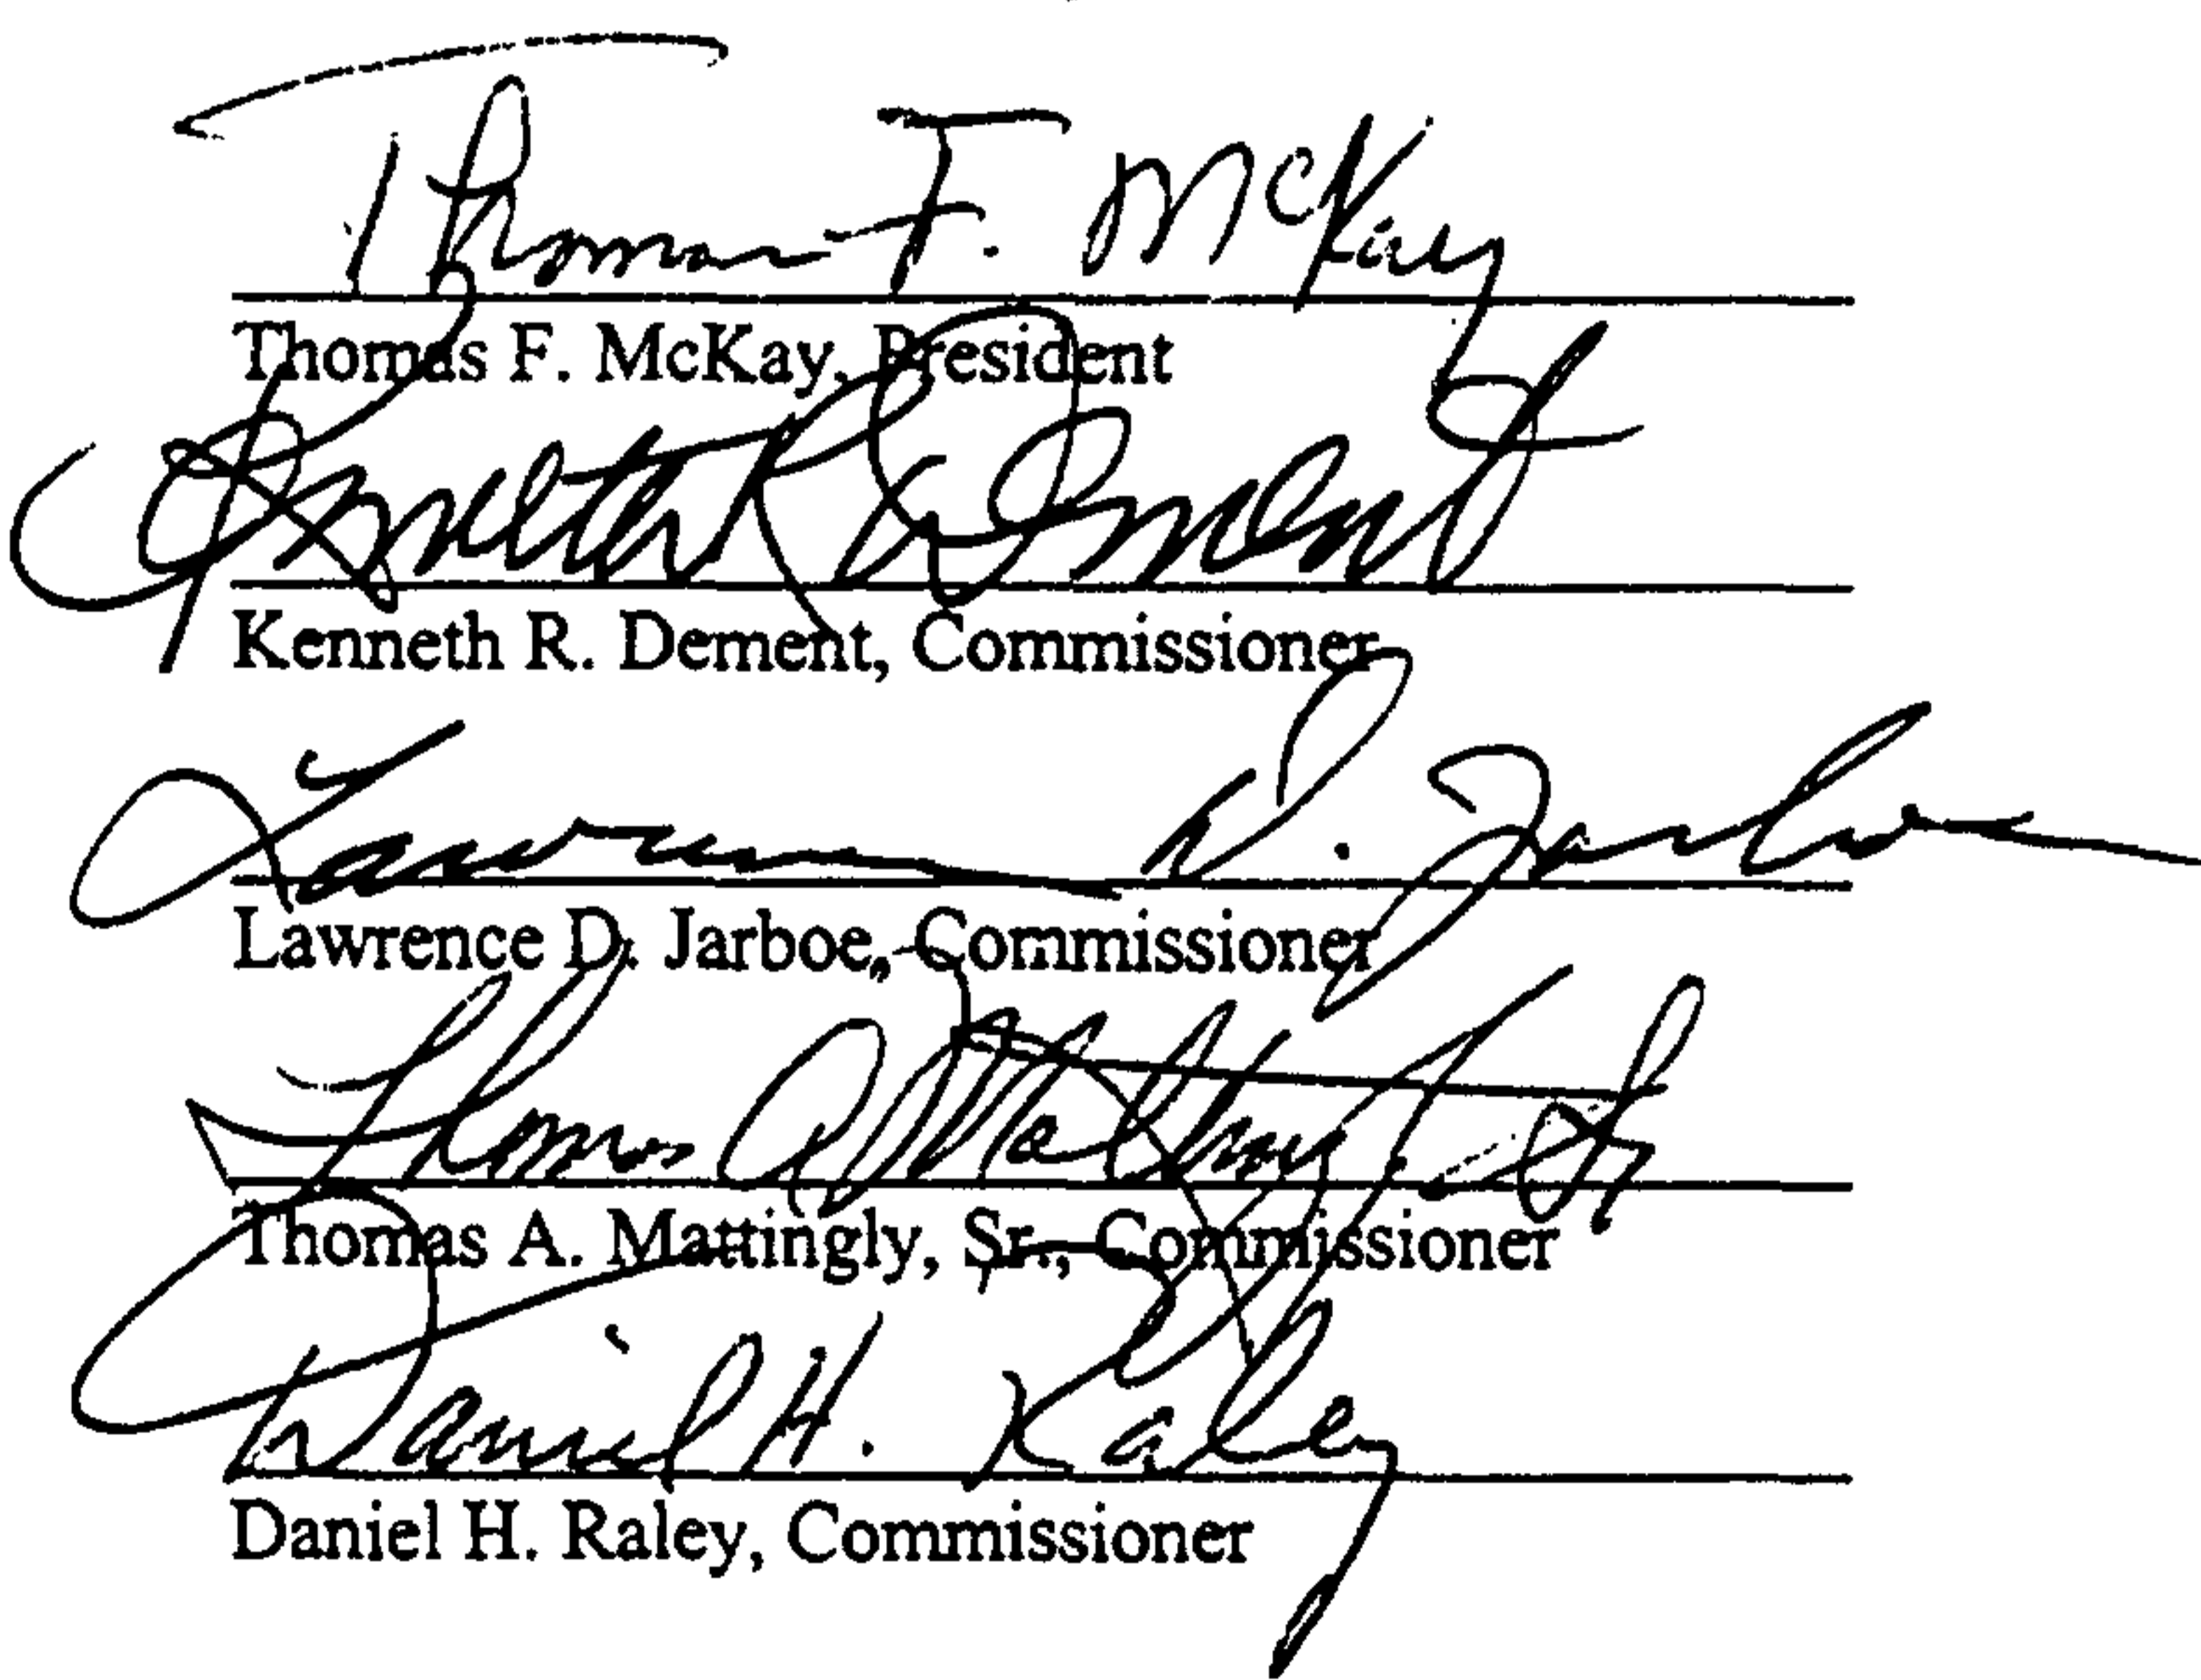 Thomas F. McKay
Thomas F. McKay, President
Kenneth R. Dement
Kenneth R. Dement, Commissioner
Lawrence D. Jarboe
Lawrence D. Jarboe, Commissioner
Thomas A. Mattingly, Sr.
Thomas A. Mattingly, Sr., Commissioner
Daniel H. Raley
Daniel H. Raley, Commissioner